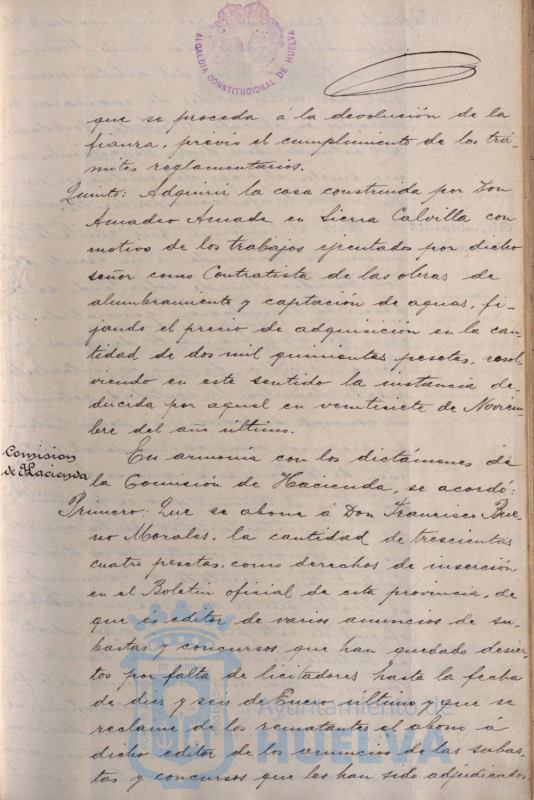 ALCALDIA CONSTITUCIONAL DE HUELVA
que se proceda á la devolución de la
fianza, previo el cumplimiento de los trá-
mites reglamentarios.
Quinto: Adquirir la casa construida por Don
Amadeo Amade en Sierra Calvilla con
motivo de los trabajos ejecutados por dicho
señor como Contratista de las obras de
alumbramiento y captación de aguas, fi-
jando el precio de adquisición en la can-
tidad de dos mil quinientas pesetas, resol-
viendo en este sentido la instancia de-
ducida por aquel en veintisiete de Noviem-
bre del año último.
Comision
de Hacienda
En armonía con los dictámenes de
la Comisión de Hacienda, se acordó:
Primero: Que se abone á Don Francisco Bue-
no Morales, la cantidad de trescientas
cuatro pesetas, como derechos de inserción
en el Boletin oficial de esta provincia, de
que es editor de varios anuncios de su-
bastas y concursos que han quedado desier-
tos por falta de licitadores hasta la fecha
de diez y seis de Enero último y que se
reclame de los rematantes el abono á
dicho editor de los anuncios de las subas-
tas y concursos que les han sido adjudicados.
Ayuntamiento de
HUELVA